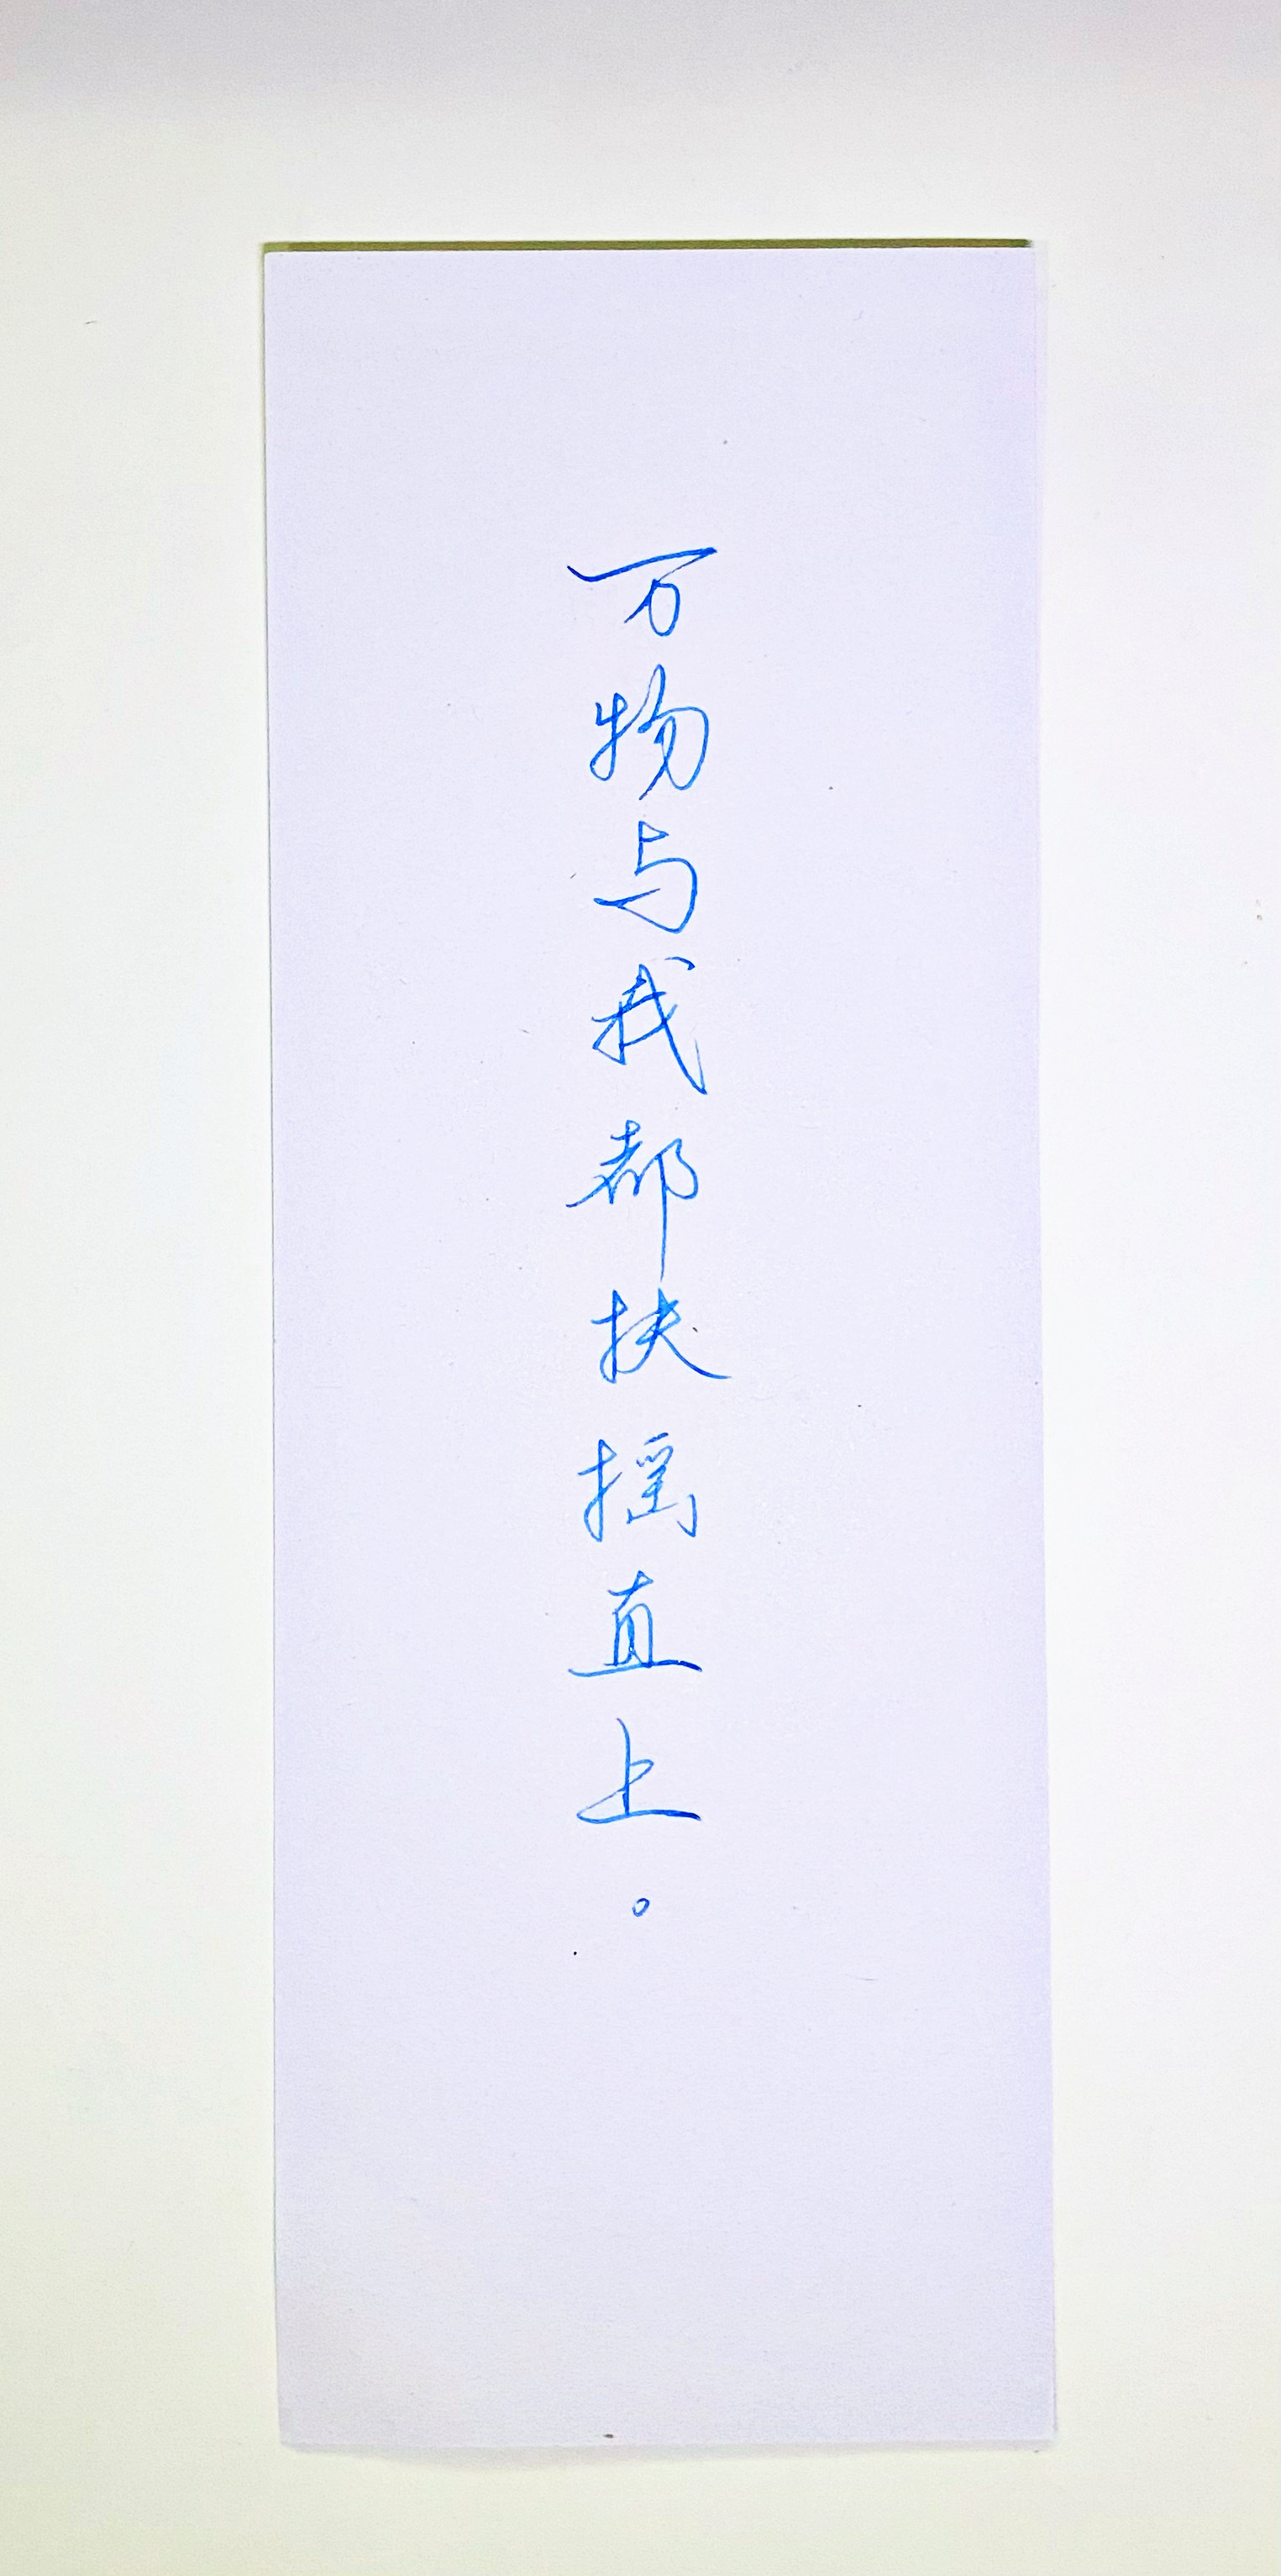 万物与我都扶摇直上。